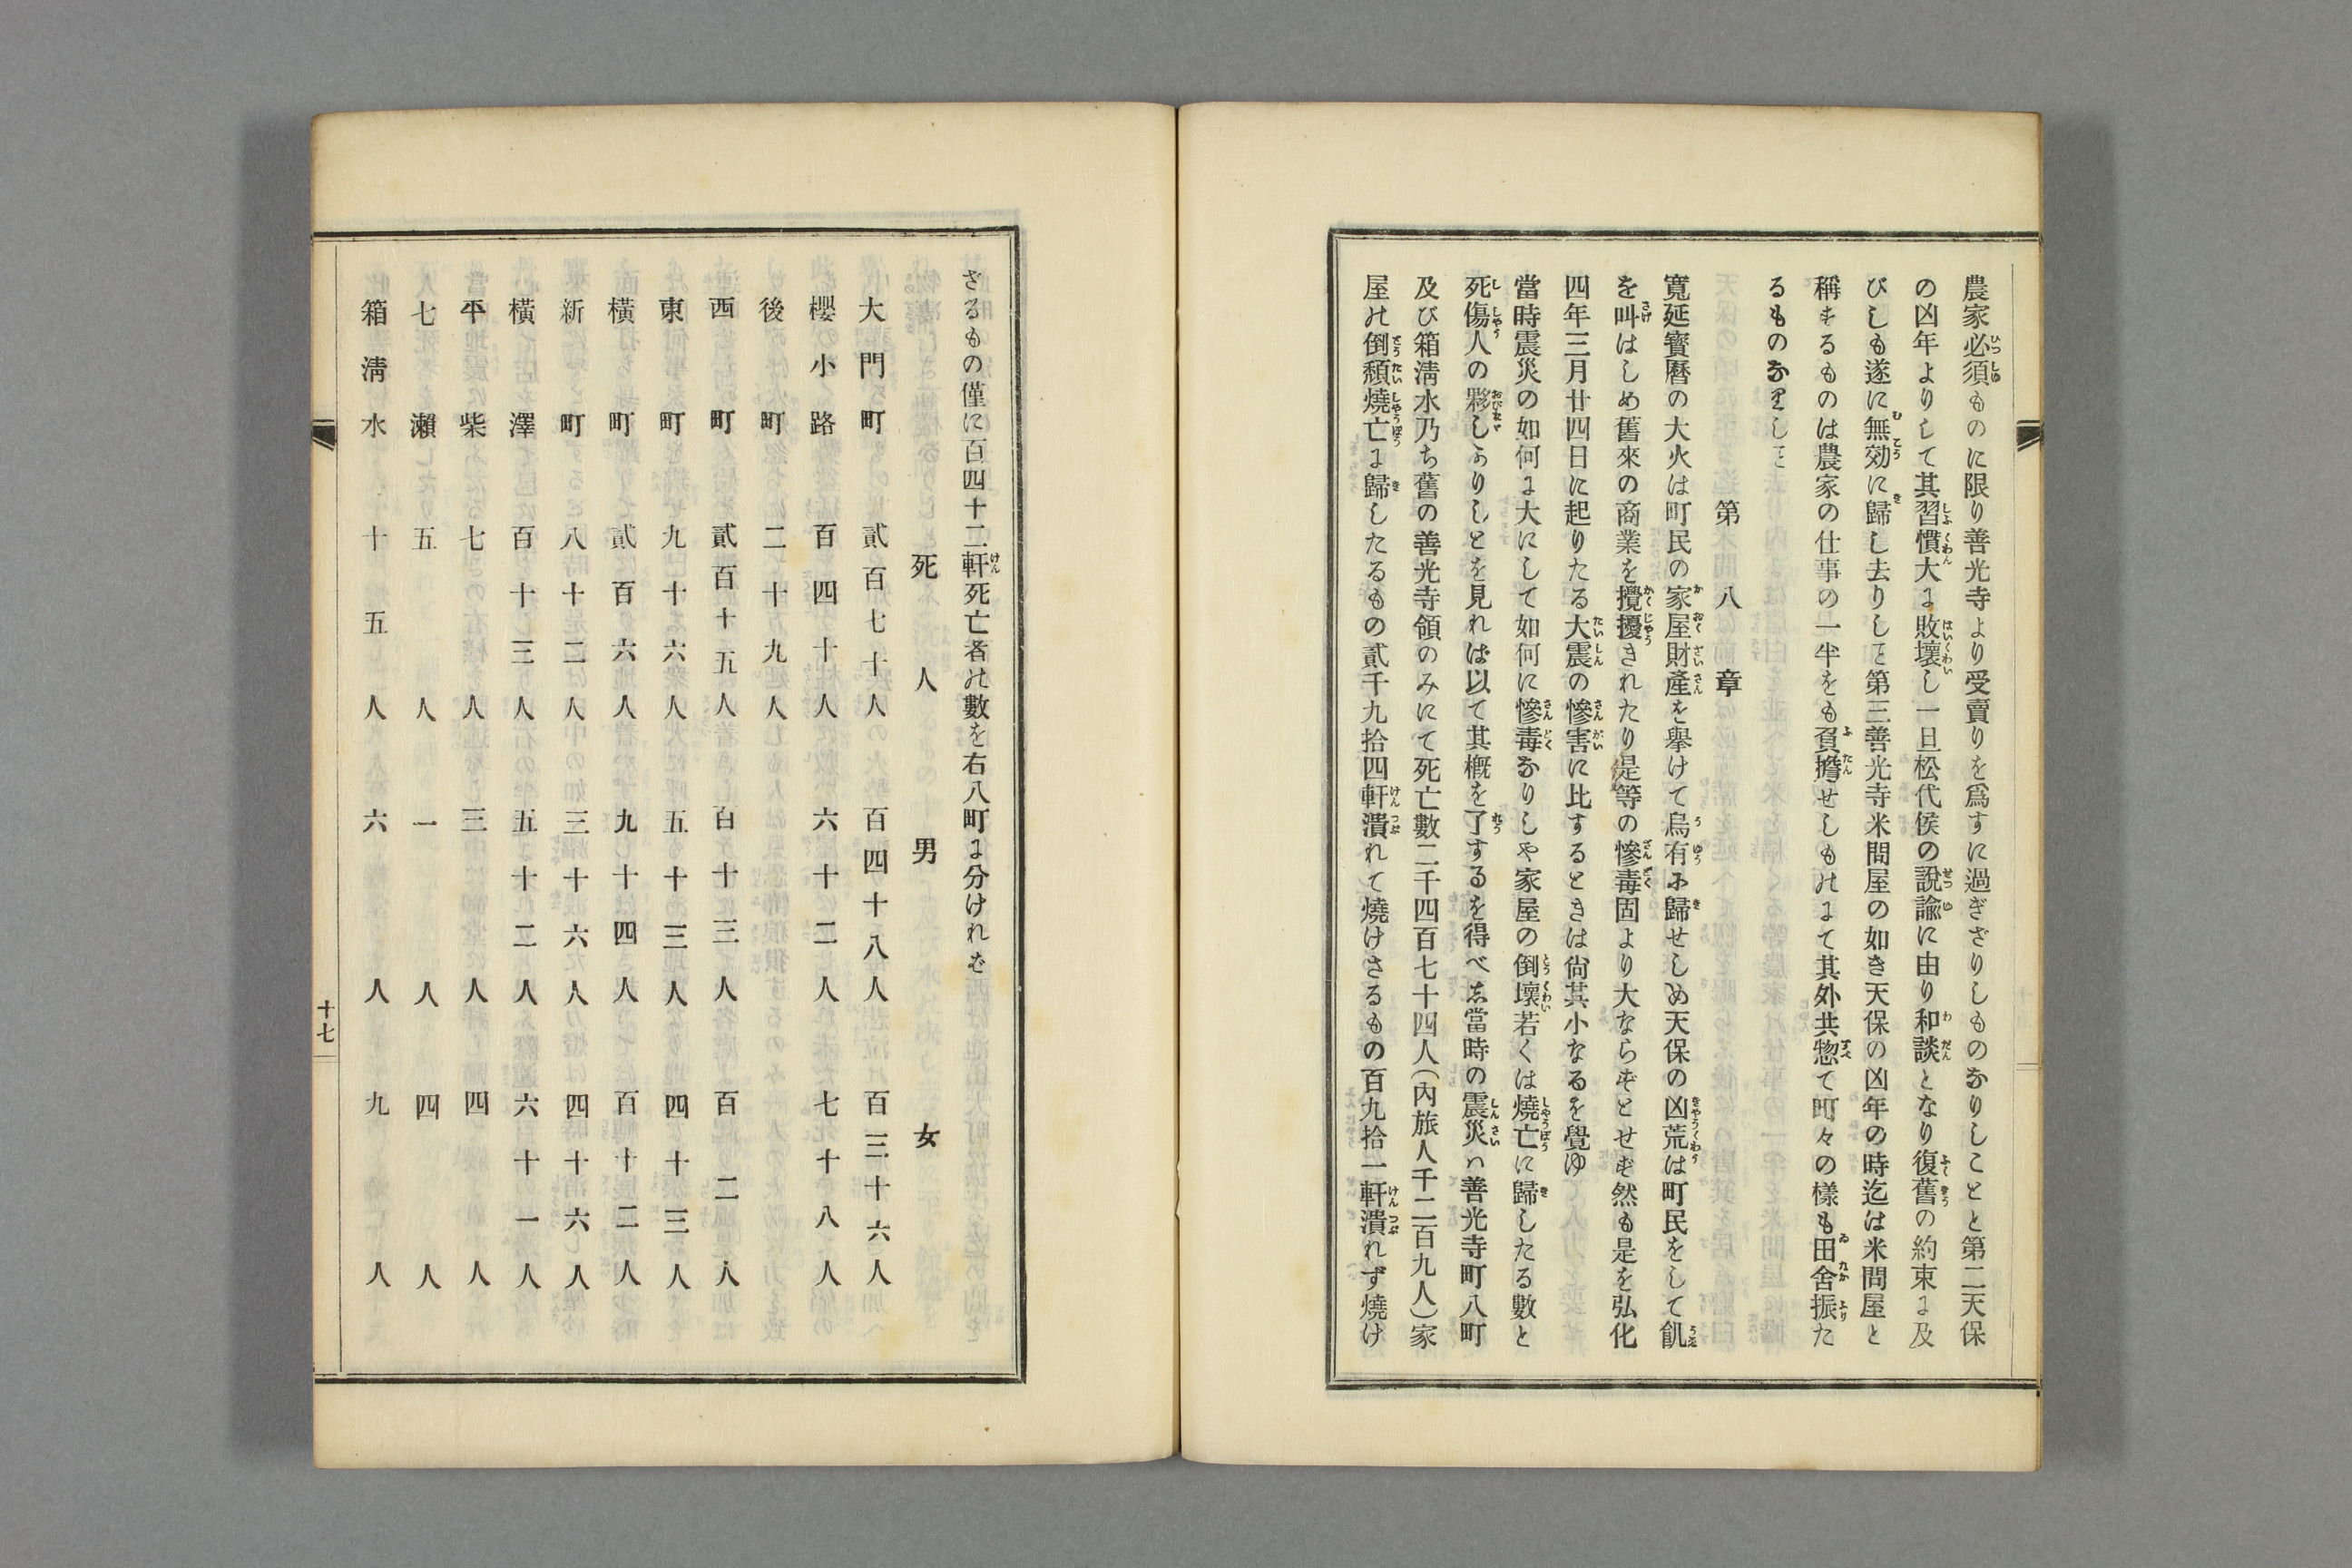 農家必須ものに限り善光寺より受賣りを爲すに過ぎざりしものなりしことと第二天保
の凶年よりして其習慣大に敗壞し一旦松代侯の說諭に由り和談となり復舊の約束に及
びしも遂に無効に歸し去りしと第三善光寺米問屋の如き天保の凶年の時迄は米問屋と
稱するものは農家の仕事の一半をも負擔せしものにて其外共惣て町々の樣も田舍振た
るものなりしと
第八章
寬延寳曆の大火は町民の家屋財產を擧けて烏有に歸せしめ天保の凶荒は町民をして飢
を叫はしめ舊來の商業を攪擾されたり是等の慘毒固より大ならずとせず然も是を弘化
四年三月廿四日に起りたる大震の慘害に比するときは尙其小なるを覺ゆ
當時震災の如何に大にして如何に慘毒なりしや家屋の倒壞若くは燒亡に歸したる數と
死傷人の夥しかりしとを見れば以て其槪を了するを得べし當時の震災は善光寺町八町
及び箱淸水乃ち舊の善光寺領のみにて死亡數二千四百七十四人(內旅人千二百九人)家
屋の倒頽燒亡に歸したるもの貳千九拾四軒潰れて燒けさるもの百九拾一軒潰れず燒け
さるもの僅に百四十二軒死亡者の數を右八町に分けれど
死人 男 女
大門町 貳百七十人 百四十八人 百三十六人
櫻小路 百四十人 六十二人 七十八人
後町 二十九人
西町 貳百十五人 百十三人 百二人
東町 九十六人 五十三人 四十三人
橫町 貳百六人 九十四人 百十二人
新町 八十二人 三十六人 四十六人
橫澤町 百十三人 五十二人 六十一人
平柴 七人 三人 四人
七瀨 五人 一人 四人
箱淸水 十五人 六人 九人
十七